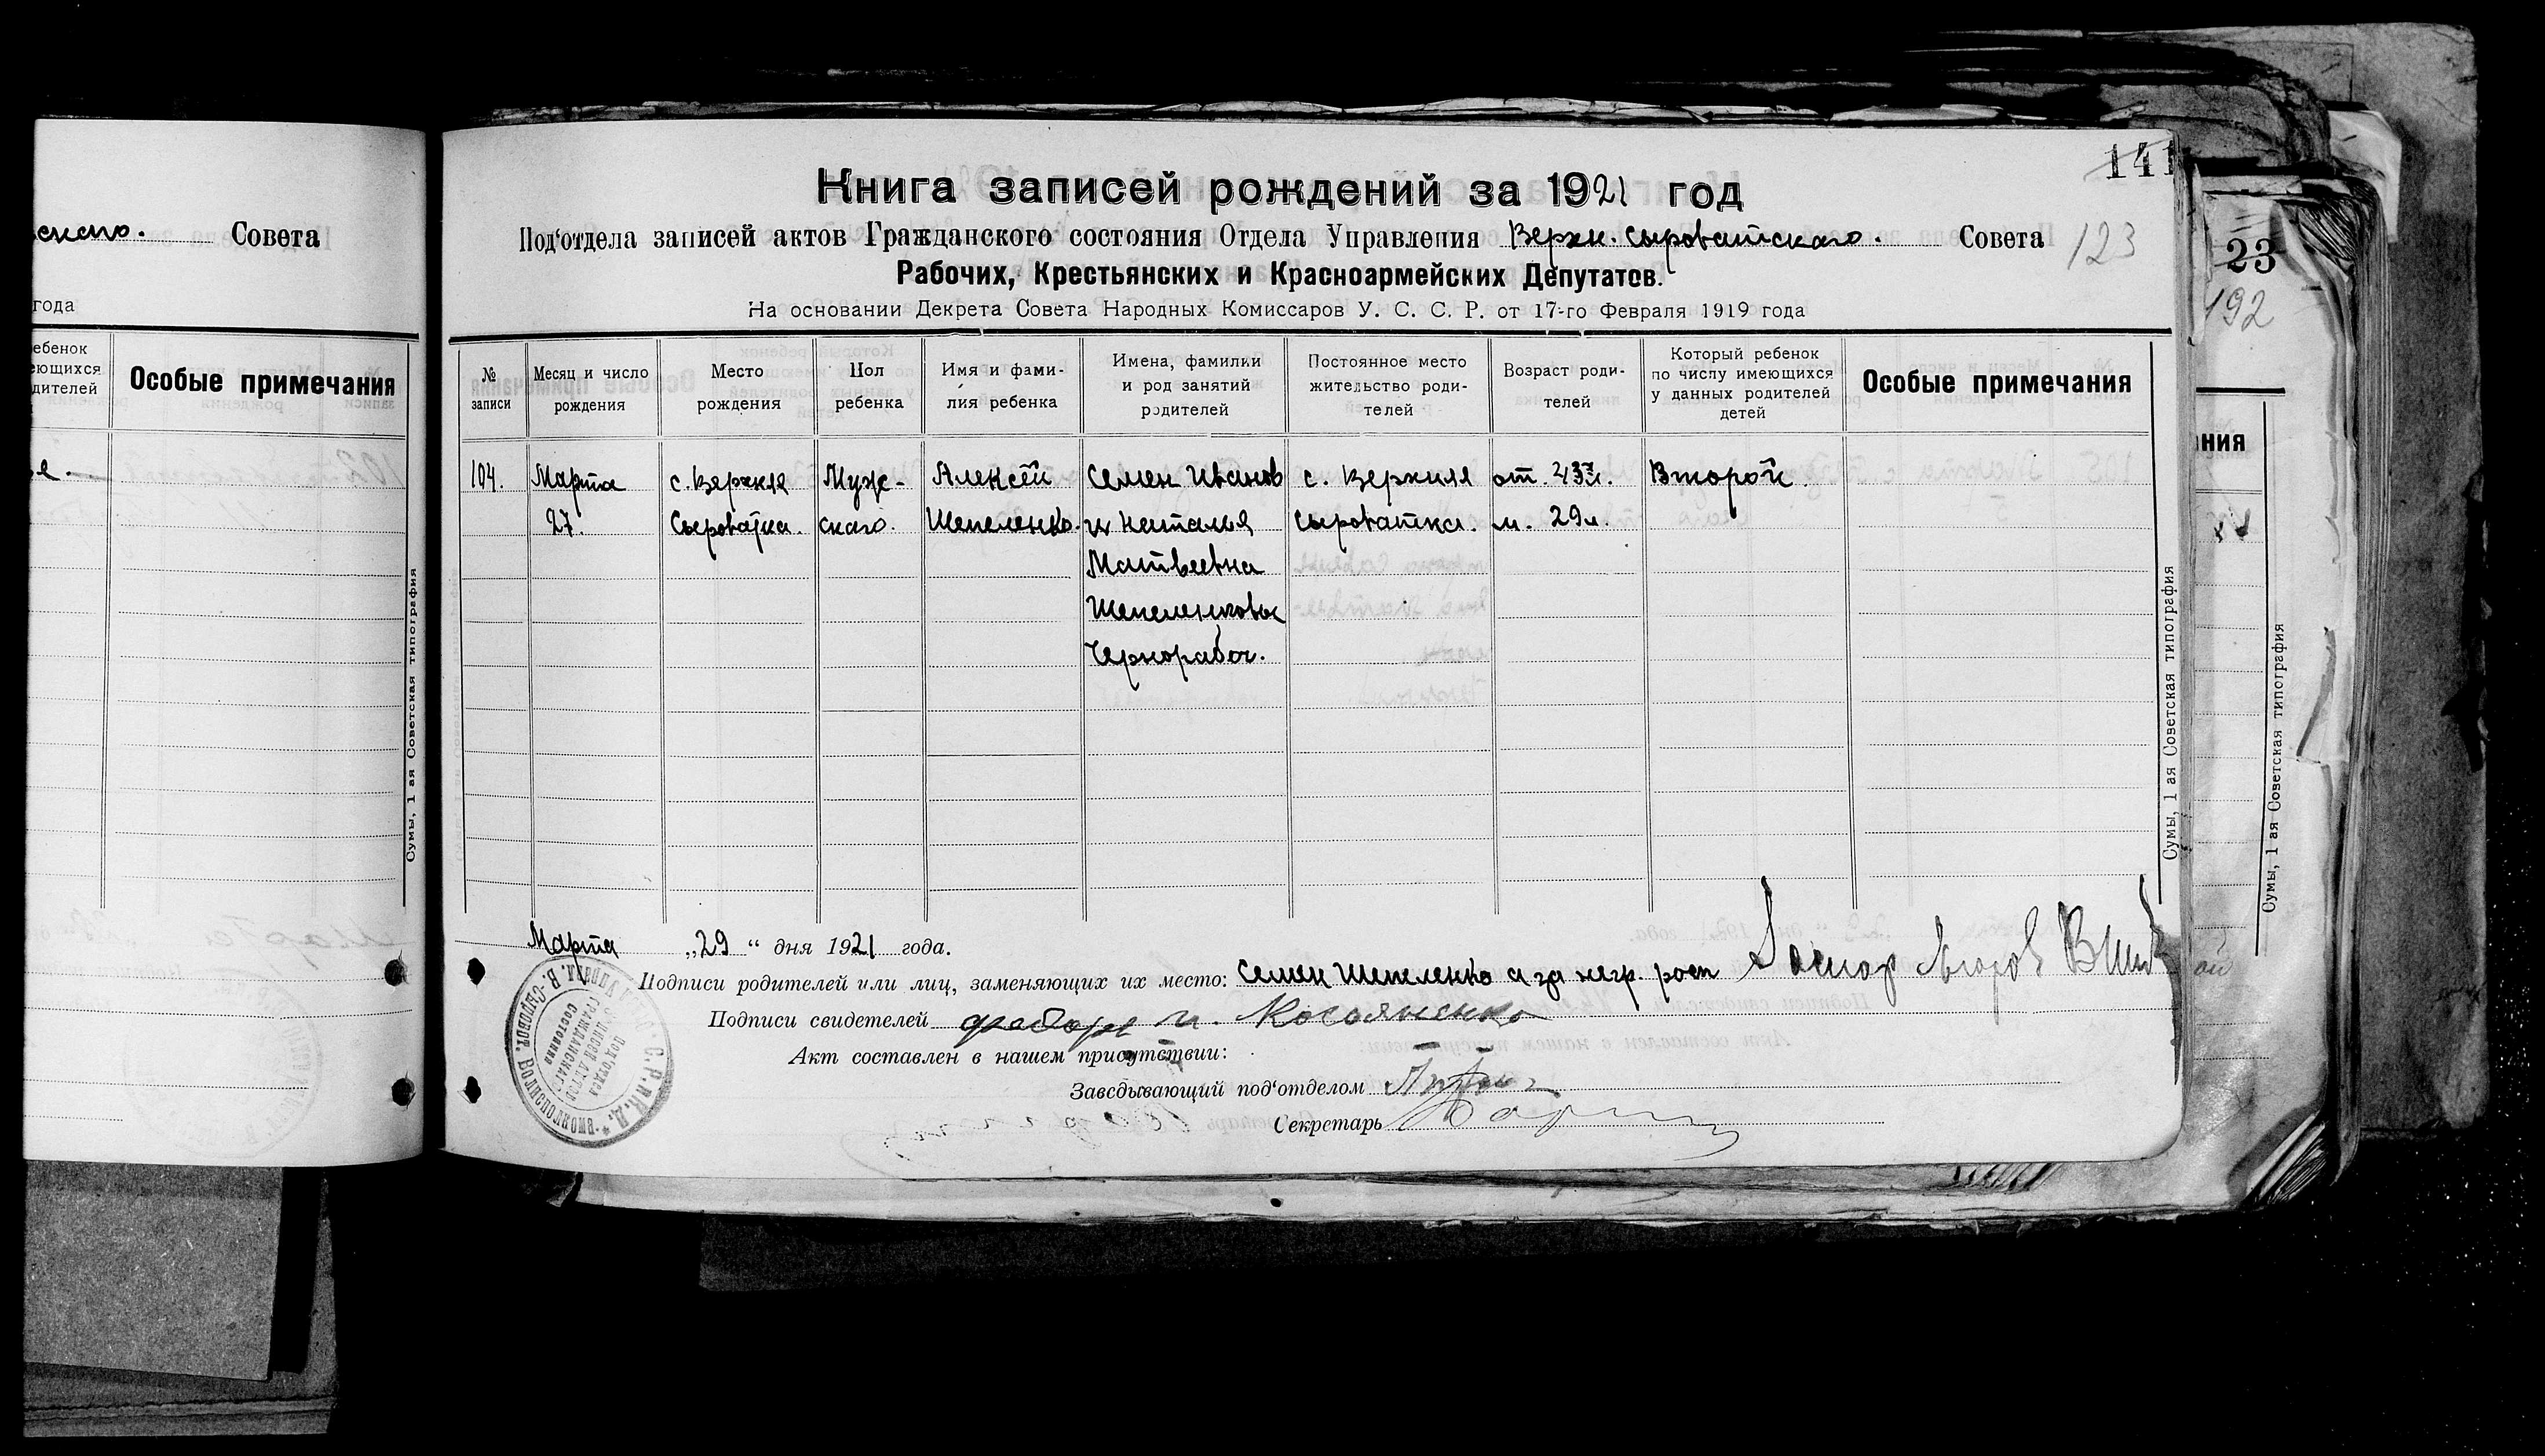 скаго. Совета
года
ебенок
еющихся
дителей
Особые примечания
Сумы, 1 ая Советская типография
141
Книга записей рождений за 1921 год
Под'отдела записей актов Гражданского состояния Отдела Управления Верхн. Сыроватскаго. Совета
123
Рабочих, Крестьянских и Красноармейских Депутатов.
На основании Декрета Совета Народных Комиссаров У. С. С. Р. от 17-го Февраля 1919 года
№ записи
Месяц и число рождения
Место рождения
Пол ребенка
Имя и фами-
лия ребенка
Имена, фамилии
и род занятий
родителей
Постоянное место
жительство роди-
телей
Возраст роди-
телей
Который ребенок
по числу имеющихся
у данных родителей
детей
Особые примечания
104. Марта с. Верхняя Муже- Алексей Семен Иванов с. Верхняя от. 43 л. Второй.
27. Сыроватка. скаго. Шепеленко. и Наталья Сыроватка. м. 29 л.
Матвеевна
Шепеленковы
Чернорабоч.
Сумы, 1 ая Советская типография
Марта „29“ дня 1921 года.
Подписи родителей или лиц, заменяющих их место: Семен Шепеленко а за негр. росп
Подписи свидетелей Федор
Акт составлен в нашем присутствии:
Заведывающий под'отделом
Секретарь
23
192
ния
Сумы, 1 ая Советская типография